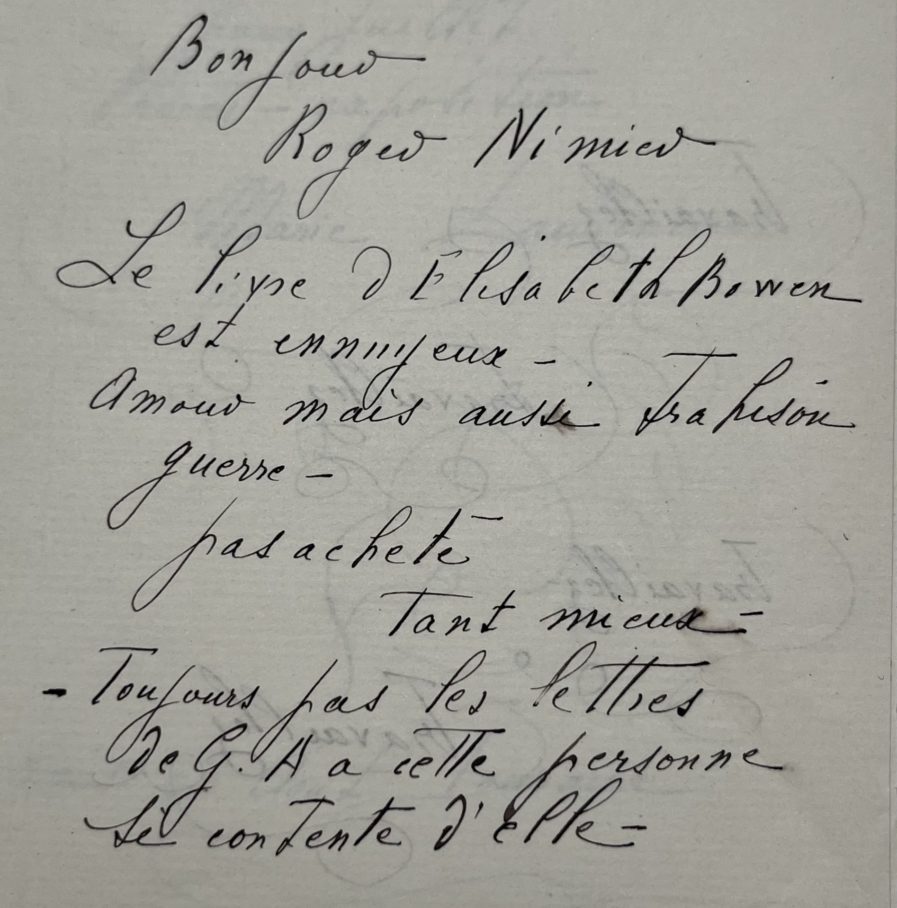 Bonjour
Roger Nimier
Le livre d Elisabeth Bowen
est ennuyeux -
Amour mais aussi trahison
guerre -
pas acheté
Tant mieux -
- Toujours pas les lettres
de G. A a cette personne
si contente d'elle -